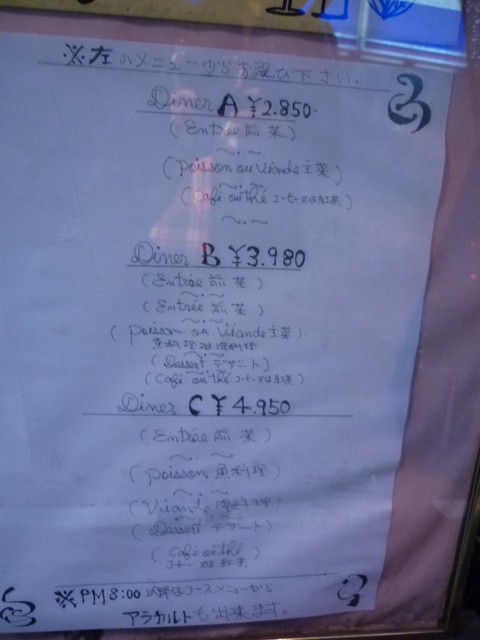 ※左のメニューからお選び下さい。
Diner A ¥2.850-
(Entrée 前菜)
(Poisson ou Viande 主菜)
(Café ou thé コーヒー又は紅茶)
Diner B ¥3.980
(Entrée 前菜)
(Entrée 前菜)
(Poisson ou Viande 主菜)
魚料理 肉料理
(Dessert デザート)
(Café ou thé コーヒー又は紅茶)
Diner C ¥4.950
(Entrée 前菜)
(Poisson 魚料理)
(Viande 肉料理)
(Dessert デザート)
(Café ou thé
コーヒー 又は 紅茶)
※PM8:00 以降はコースメニューから
アラカルトも出来ます。